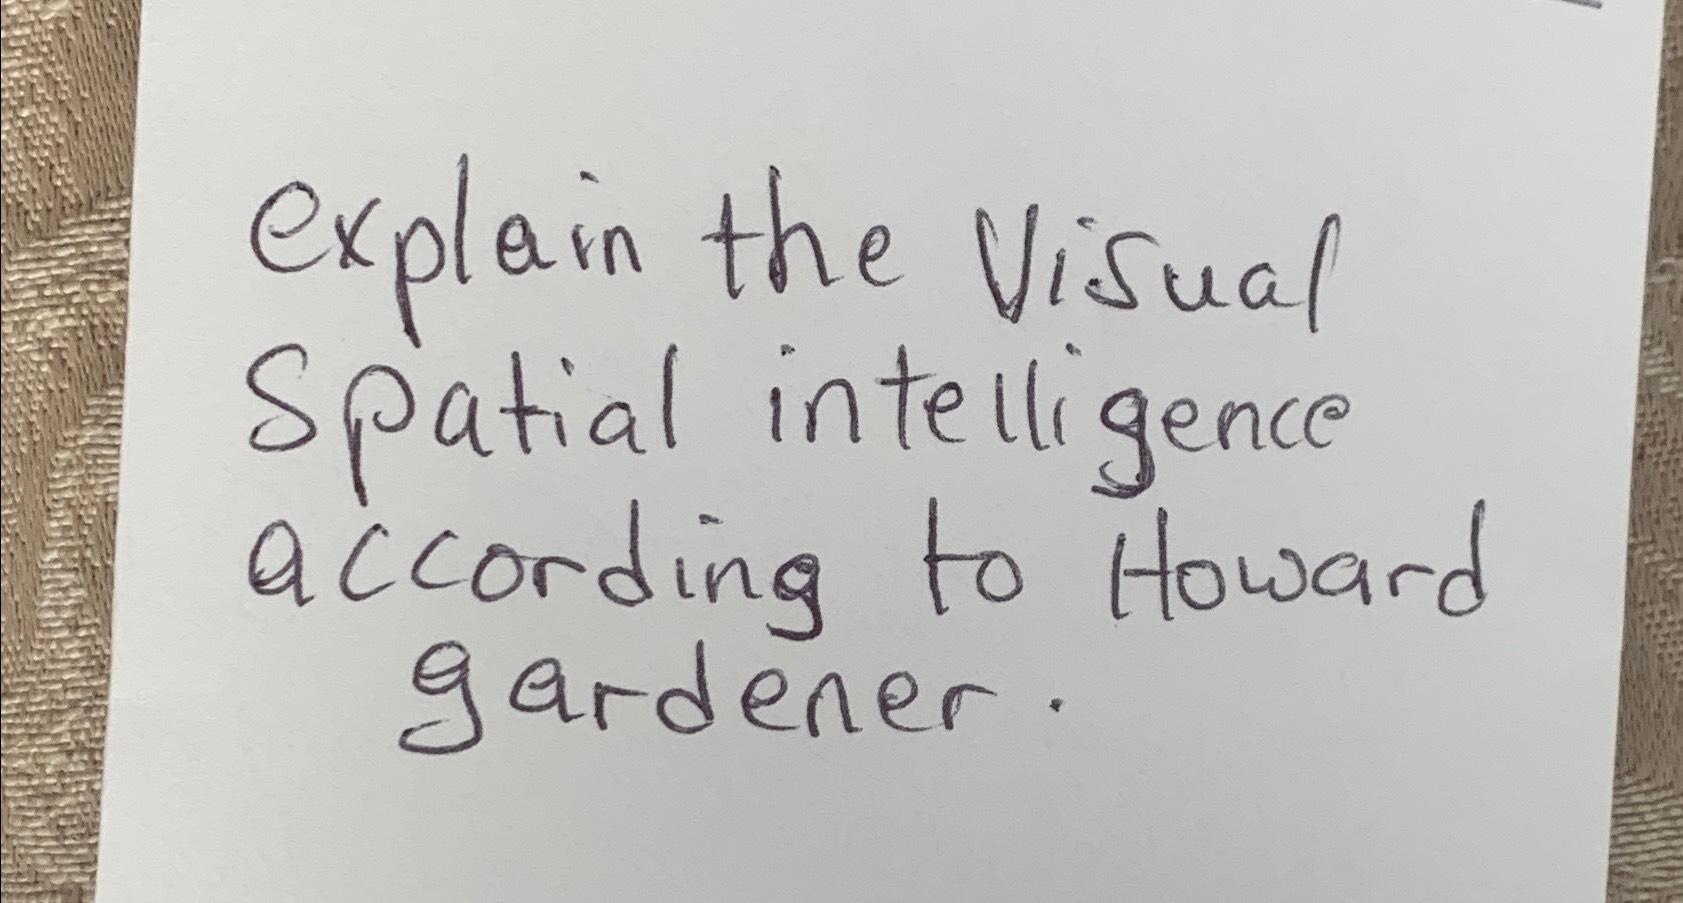 explain the Visual
Spatial intelligence
according to Howard
gardener.